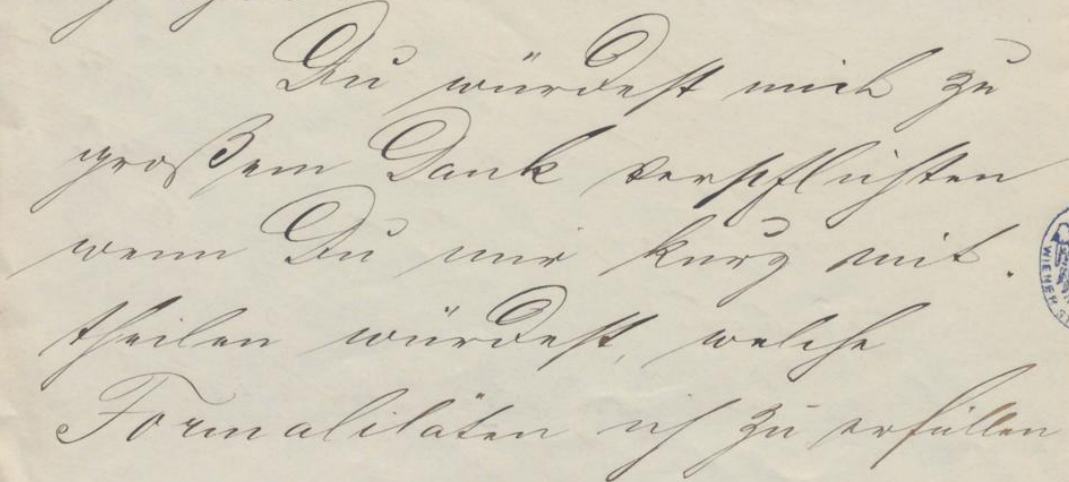 Du würdest mich zu
großem Dank verpflichten
wenn Du mir kurz mit.
theilen würdest, welche
Formalitäten ich zu erfüllen
WIENER